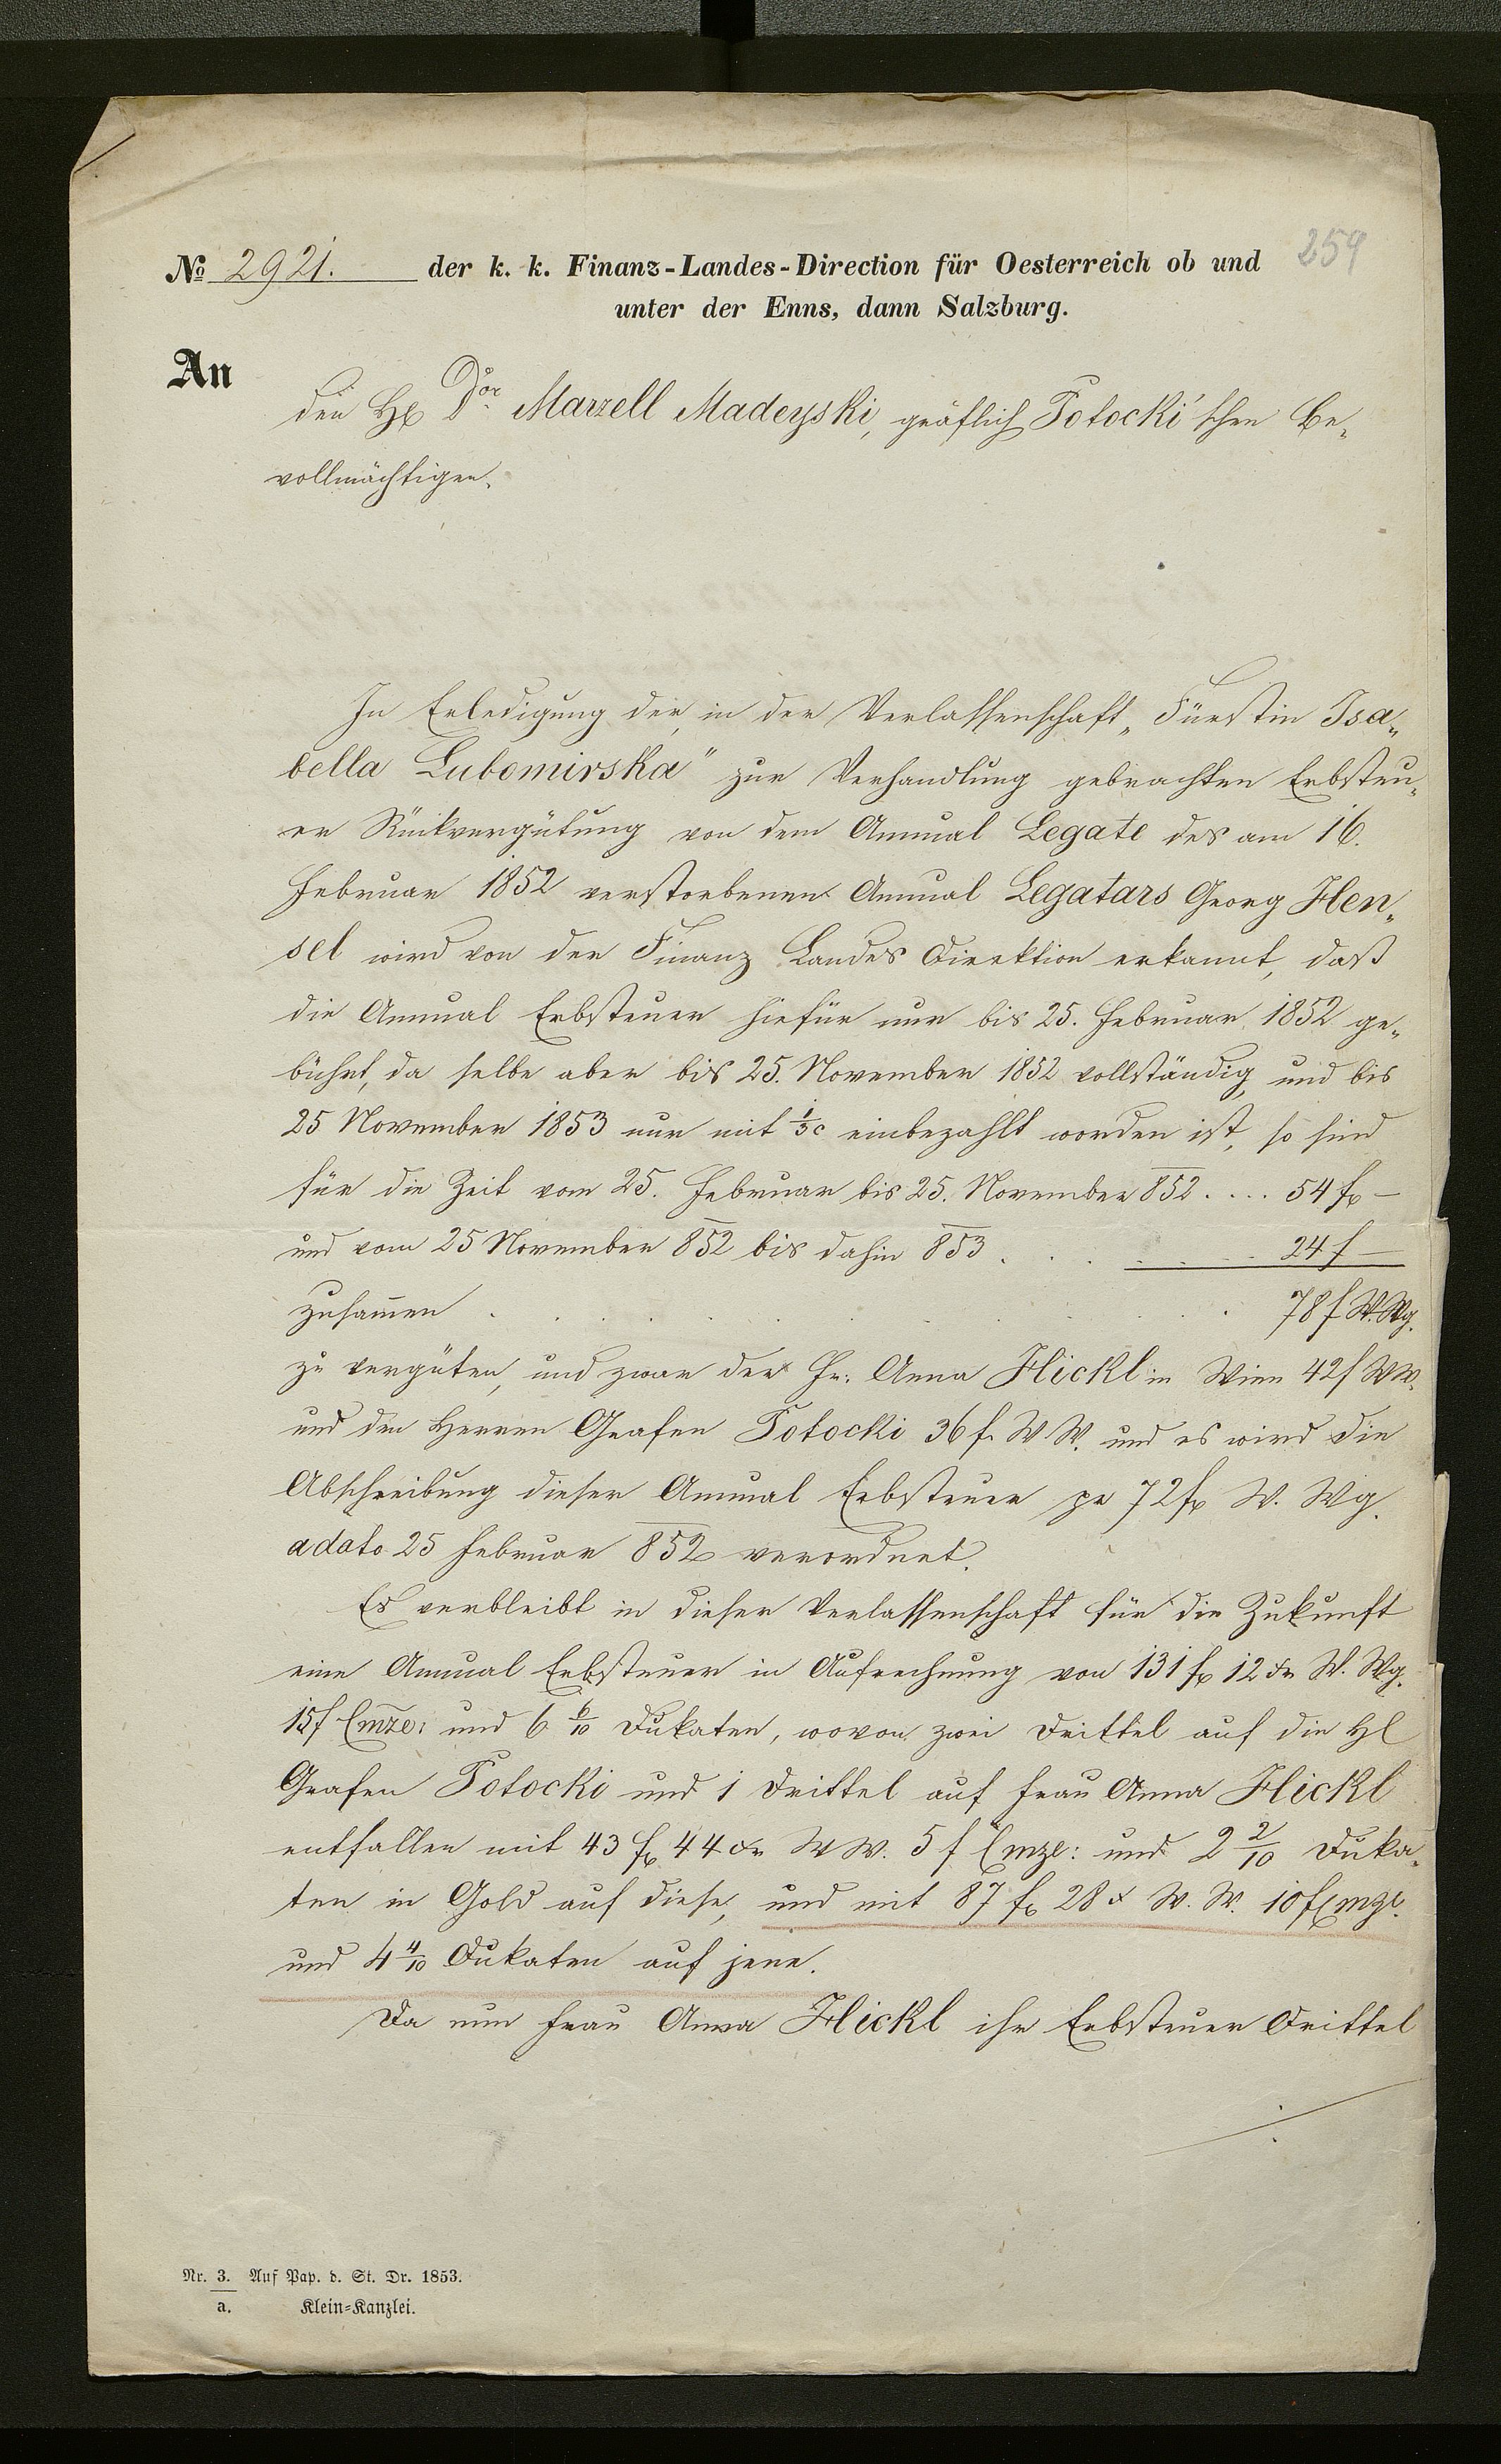 No 2921. der k. k. Finanz-Landes-Direction für Oesterreich ob und
259
unter der Enns, dann Salzburg.
An
den H Dor Marzell Madeyski, gräflich Potocki'schen Be„
vollmächtigen.
In Erledigung der, in der Verlassenschaft „Fürstin Isa„
bella Lubomirska" zur Verhandlung gebrachten Erbsteu„
er Rückvergütung von dem Annual Legate des am 16.
Februar 1852 verstorbenen Annual Legatars Georg Hen„
sel wird von der Finanz Landes Direktion erkannt, daß
die Annual Erbsteuer hiefür nur bis 25. Februar 1852 ge„
bührt, da selbe aber bis 25. November 1852 vollständig, und bis
25 November 1853 nur mit 1/3 einbezahlt worden ist, so sind
für die Zeit vom 25. Februar bis 25. November 852 .... 54 f –
und vom 25 November 852 bis dahin 853 . . . . . . 24 f –
zusam̄en . . . . . . . . . . 78 f W. Wg.
zu vergüten, und zwar der Fr. Anna Hickl in Wien 42 f WW.
und den Herren Grafen Potocki 36 f. W W. und es wird die
Abschreibung dieser Annual Erbsteuer pr 72 f W. Wg.
a dato 25 Februar 852 verordnet.
Es verbleibt in dieser Verlassenschaft für die Zukunft
eine Annual Erbsteuer in Aufrechnung von 131 f 12 xr W. Wg.
15 f Cmze: und 6 6/10 Dukaten, wovon zwei Drittel auf die H
Grafen Potocki und 1 Drittel auf Frau Anna Hickl
entfallen mit 43 f 44 xr W W. 5 f Cmze: und 2 2/10 Duka„
ten in Gold auf diese, und mit 87 f 28 x W. W. 10 f Cmze.
und 4 4/10 Dukaten auf jene.
Da nun Frau Anna Hickl ihr Erbsteuer Drittel
./.
Nr. 3. Auf Pap. d. St. Dr. 1853.
a. Klein-Kanzlei.